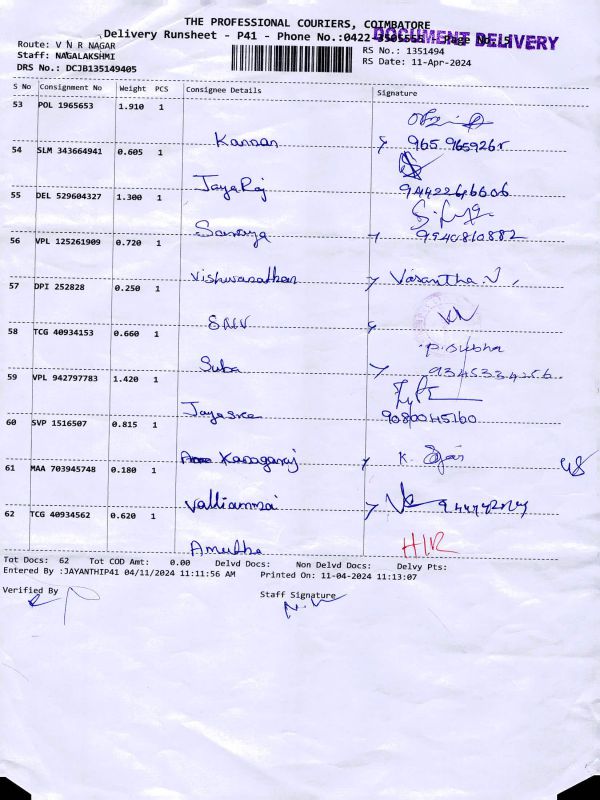 THE PROFESSIONAL COURIERS, COIMBATORE
Delivery Runsheet - P41 - Phone No.:0422-3505555 Page No. 5
DOCUMENT DELIVERY
Route: V N R NAGAR
RS No.: 1351494
Staff: NAGALAKSHMI
RS Date: 11-Apr-2024
DRS No.: DCJB135149405
S No Consignment No Weight PCS Consignee Details Signature
53 POL 1965653 1.910 1
Kannan 965 9659265
54 SLM 343664941 0.605 1
JayaRaj 9442266606
55 DEL 529604327 1.300 1
9940810882
56 VPL 125261909 0.720 1
Vasantha.V
57 DPI 252828 0.250 1
SNV
58 TCG 40934153 0.660 1
P.Subha
Suba 9345334256
59 VPL 942797783 1.420 1
Jayasree 9080045160
60 SVP 1516507 0.815 1
Kanagaraj K.
61 MAA 703945748 0.180 1
Valliammai
62 TCG 40934562 0.620 1
Amutha
Tot Docs: 62 Tot COD Amt: 0.00 Delvd Docs: Non Delvd Docs: Delvy Pts:
Entered By :JAYANTHIP41 04/11/2024 11:11:56 AM Printed On: 11-04-2024 11:13:07
Verified By Staff Signature